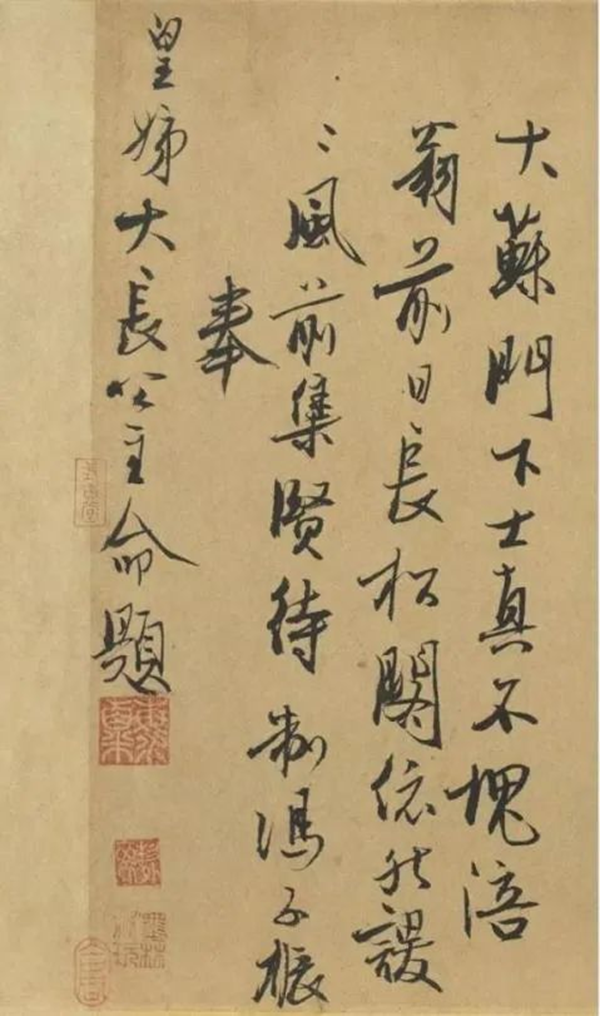 大蘇門下士真不愧涪
翁前日長松閣依然謖
〻風前集賢待制馮子振
奉
皇姊大長公主命題